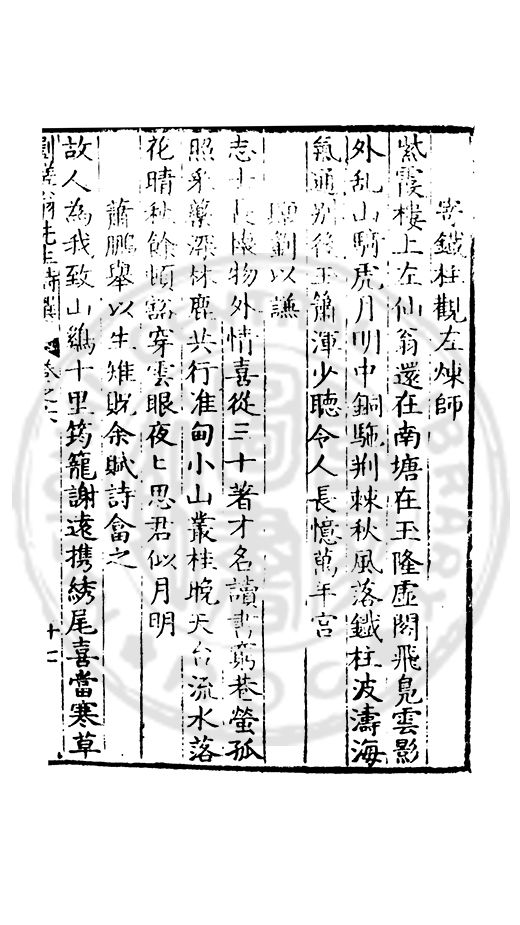 寄鐵柱觀左煉師
紫霞樓上左仙翁還在南塘在玉隆虛閣飛鳧雲影
外乱山騎虎月明中銅駞荆棘秋風落鐵柱波濤海
氣通别後玉簫渾少聽令人長憶萬年宮
劉以謙
志士長懷物外情喜從三十著才名讀書窮巷螢孤
照采藥深林鹿共行淮甸小山叢桂晚天台流水落
花晴秋餘頓豁穿雲眼夜匕思君似月明
蕭鵬舉以生雉貺余賦詩畣之
故人為我致山鷄十里筠籠謝遠携綉尾喜當寒草
先生詩 卷之六 十二